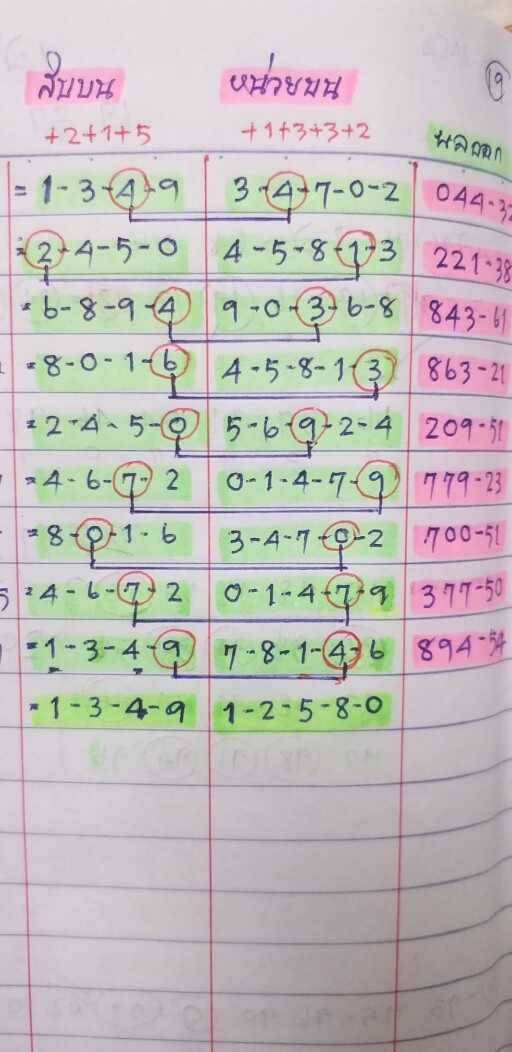 19
สิบบน หน่วยบน
+2+1+5 +1+3+3+2 ผลออก
=1-3-4-9 3-4-7-0-2 044-32
=2-4-5-0 4-5-8-1-3 221-38
=6-8-9-4 9-0-3-6-8 843-61
=8-0-1-6 4-5-8-1-3 863-21
=2-4-5-0 5-6-9-2-4 209-51
=4-6-7-2 0-1-4-7-9 779-23
=8-0-1-6 3-4-7-0-2 700-51
=4-6-7-2 0-1-4-7-9 377-50
=1-3-4-9 7-8-1-4-6 894-54
=1-3-4-9 1-2-5-8-0